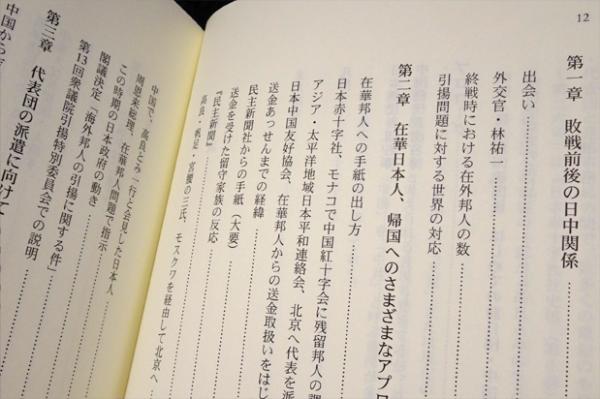 12
第一章 敗戦前後の日中関係
出会い
外交官・林祐一
終戦時における在外邦人の数
引揚問題に対する世界の対応
第二章 在華日本人、帰国へのさまざまなアプロ
在華邦人への手紙の出し方
日本赤十字社、モナコで中国紅十字会に残留邦人の調
アジア・太平洋地域日本平和連絡会、北京へ代表を派
日本中国友好協会、在華邦人からの送金取扱いをはじ
送金あっせんまでの経緯
民主新聞社からの手紙（大要）
送金を受けた留守家族の反応
『民主新聞』
高良・帆足・宮腰の三氏、モスクワを経由して北京へ
中国で、高良とみ一行と会見した日本人
周恩来総理、在華邦人問題で指示
この時期の日本政府の動き
閣議決定「海外邦人の引揚に関する件」
第13回衆議院引揚特別委員会での説明
第三章 代表団の派遣に向けて
中国から